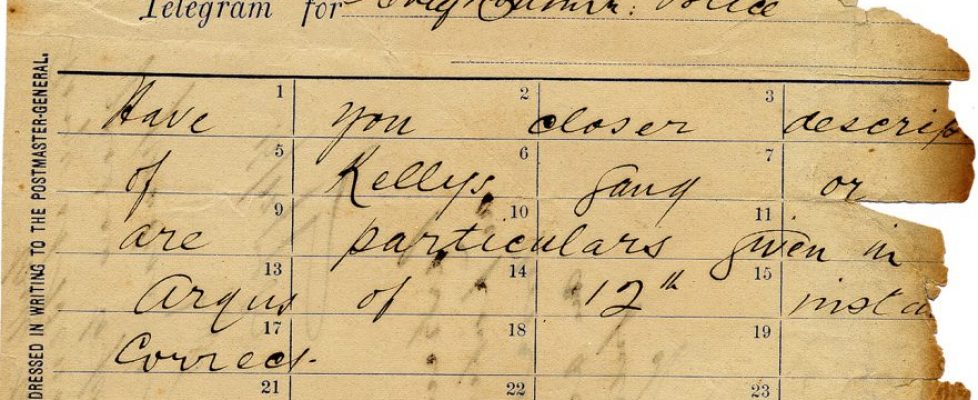 Telegram for Police
1 2 3
Have you closer descrip
5 6 7
of Kellys gang or
9 10 11
are particulars given in
13 14 15
Argus of 12th inst
17 18 19
Correct.
21 22 23
DRESSED IN WRITING TO THE POSTMASTER-GENERAL.